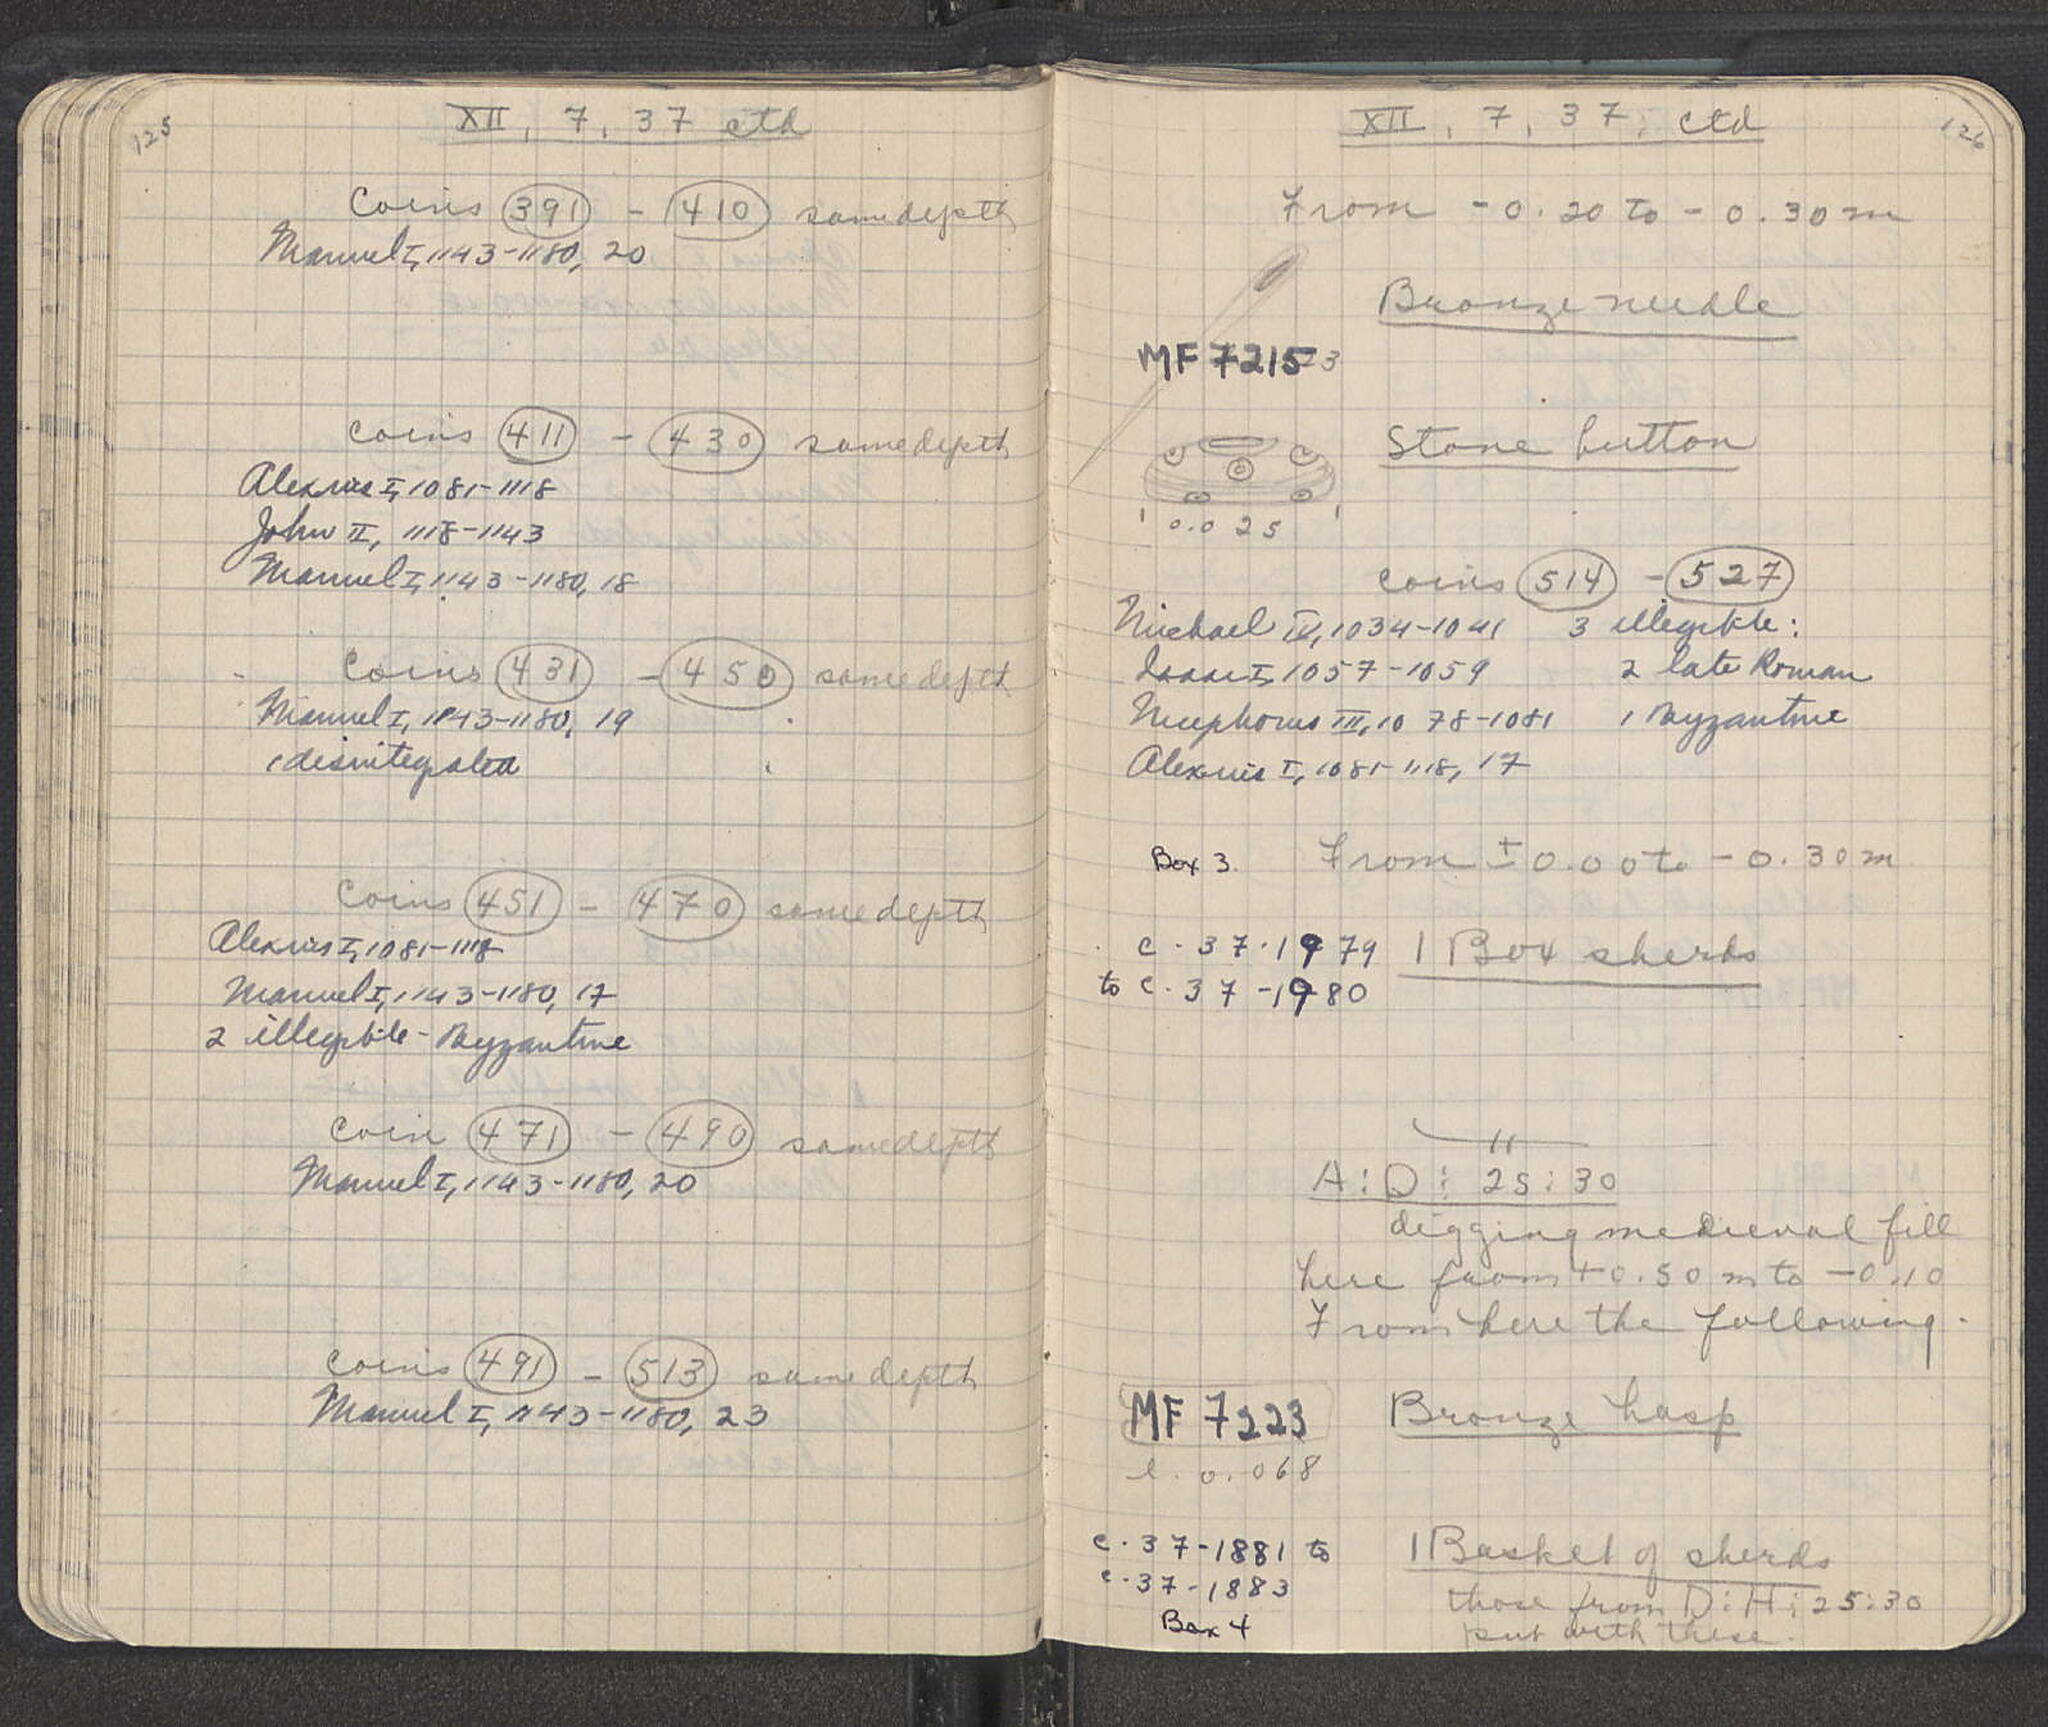 125
XII, 7, 37 ctd
Coins 391 - 410 same depth
Manuel I, 1143-1180, 20
Coins 411 - 430 same depth
Alexius I, 1081-1118
John II, 1118-1143
Manuel I, 1143-1180, 18
Coins 431 - 450 same depth
Manuel I, 1143-1180, 19
1 disintegrated
Coins 451 - 470 same depth
Alexius I, 1081-1118
Manuel I, 1143-1180, 17
2 illegible - Byzantine
Coin 471 - 490 same depth
Manuel I, 1143-1180, 20
Coins 491 - 513 same depth
Manuel I, 1143-1180, 23
126
XII, 7, 37, ctd
From -0.20 to -0.30 m
Bronze needle
MF 7215
Stone button
0.025
Coins 514 - 527
Michael IV, 1034-1041 3 illegible:
Isaac I, 1057-1059 2 late Roman
Nicephorus III, 1078-1081 1 Byzantine
Alexius I, 1081-1118, 17
Box 3. From ±0.00 to -0.30 m
C-37-1979 1 Box sherds
to C-37-1980
A:D: 25:30
digging medieval fill
here from +0.50 m to -0.10
From here the following.
MF 7223 Bronze hasp
l. 0.068
C-37-1881 to 1 Basket of sherds
C-37-1883 those from D:H: 25:30
Box 4 put with these.